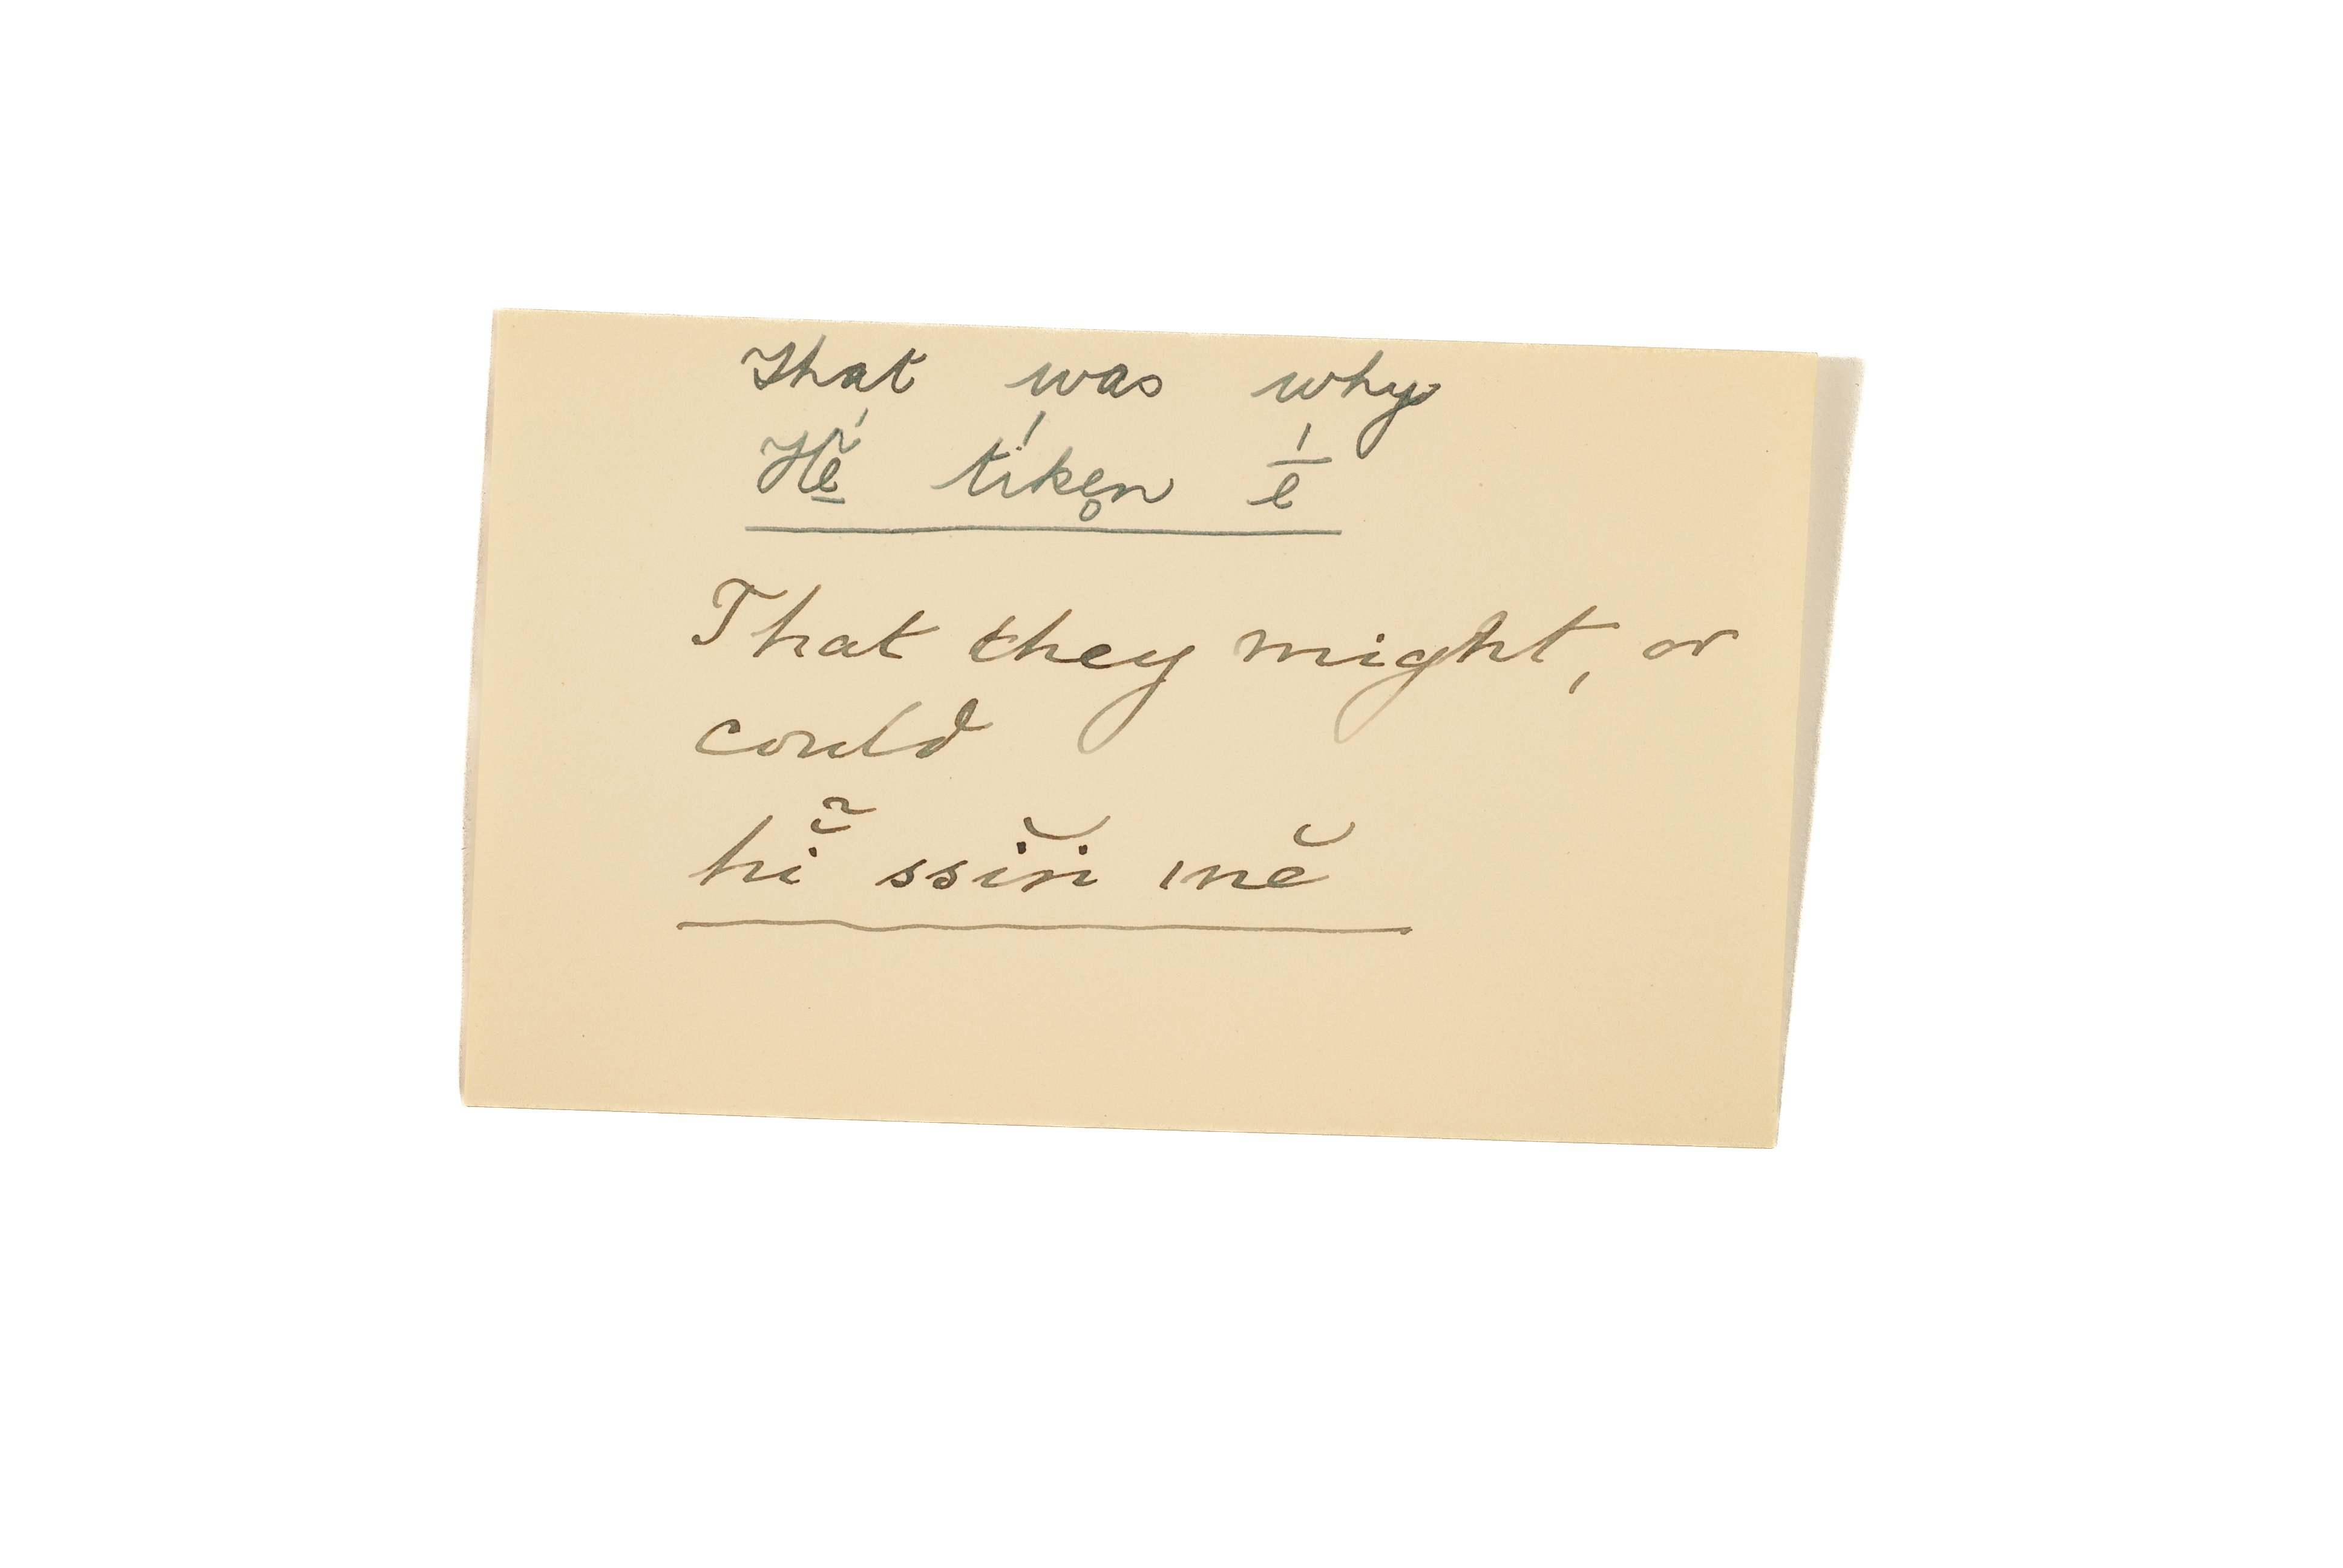 That was why
Hẽ́ tíken̥ ē̍
That they might, or
could
hĭ̃ ssĭri ınĕ